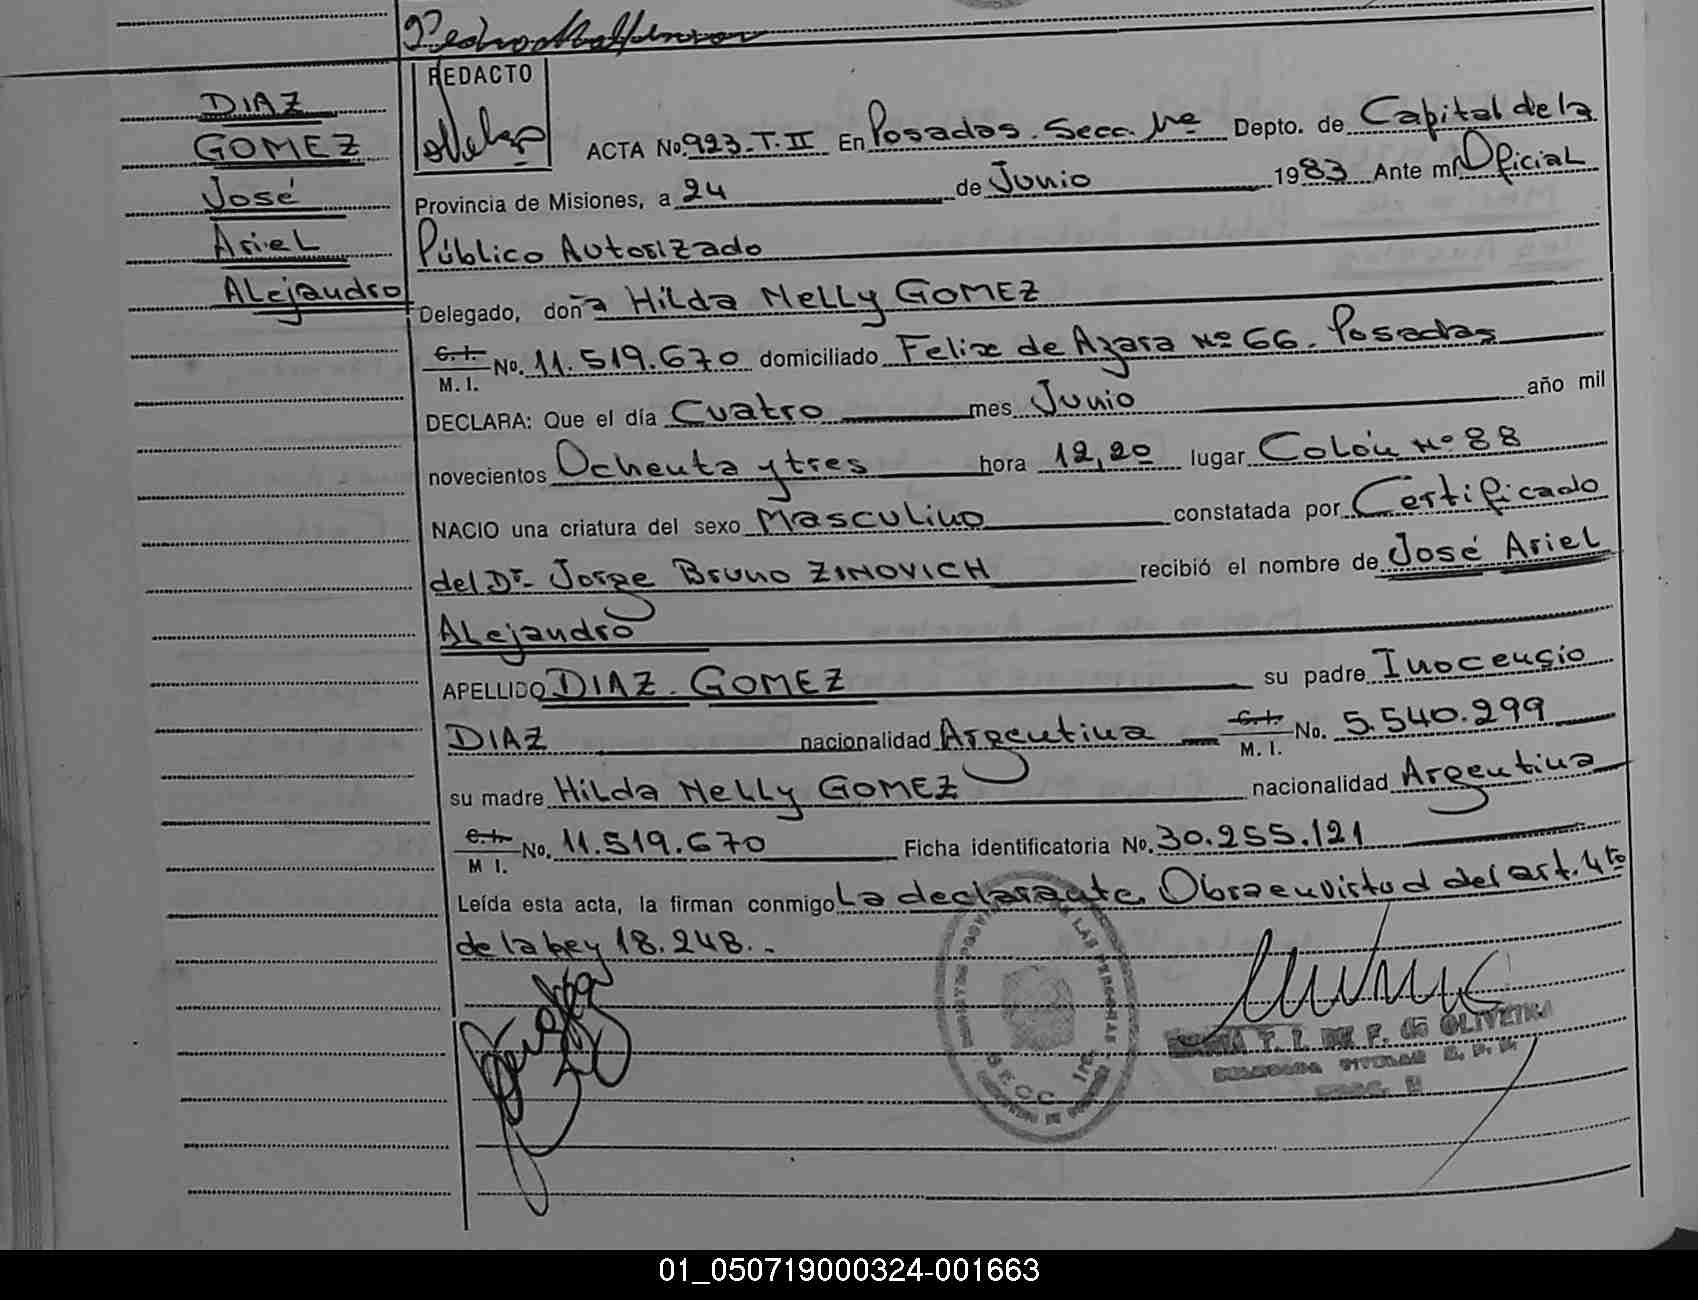 REDACTO
DIAZ
GOMEZ
José
Ariel
Alejandro
ACTA No. 923-T.II En Posadas. Secc. 1ra Depto. de Capital de la
Provincia de Misiones, a 24 de Junio 1983 Ante mí Oficial
Público Autorizado
Delegado, doña Hilda Nelly GOMEZ
C.I. M.I. No. 11.519.670 domiciliado Felix de Azara Nº 66. Posadas
DECLARA: Que el día Cuatro mes Junio año mil
novecientos Ochenta y tres hora 12,20 lugar Colón Nº 88
NACIO una criatura del sexo Masculino constatada por Certificado
del Dr. Jorge Bruno ZINOVICH recibió el nombre de José Ariel
Alejandro
APELLIDO DIAZ. GOMEZ su padre Inocencio
DIAZ nacionalidad Argentina C.I. M.I. No. 5.540.299
su madre Hilda Nelly GOMEZ nacionalidad Argentina
C.I. M I. No. 11.519.670 Ficha identificatoria No. 30.255.121
Leída esta acta, la firman conmigo La declarante. Obra en virtud del art. 4to
de la Ley 18.248..
T. I. DE F. de OLIVEIRA
TITULAR
SECC. 1ra
01_050719000324-001663